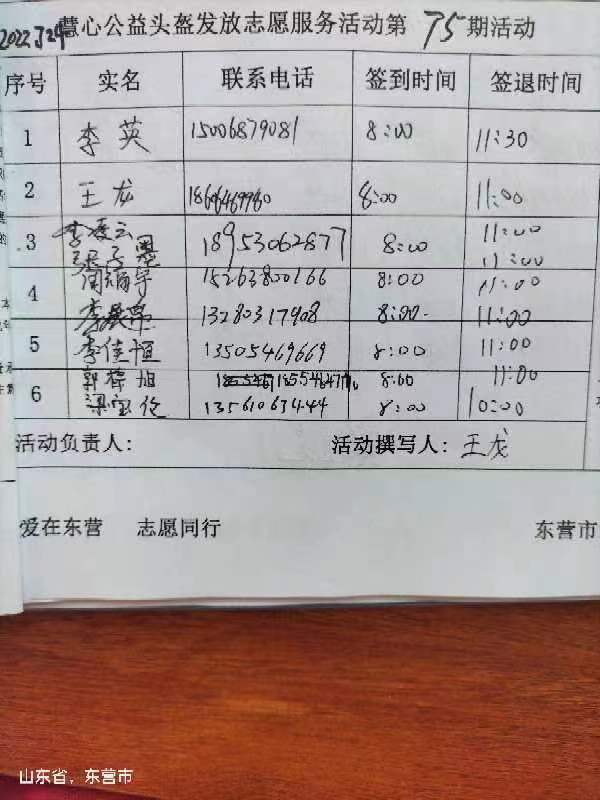 慧心公益头盔发放志愿服务活动第75期活动
序号 实名 联系电话 签到时间 签退时间
1 李英 15006879081 8:00 11:30
2 王龙 8:00 11:00
3 李凌云 18953062877 8:00 11:00
11:00
4 15263800166 8:00 11:00
13280317908 8:00 11:00
5 李佳恒 13505469669 8:00 11:00
郭梓旭 8:00 11:00
6 梁宝伦 13561063444 8:00 10:00
活动负责人: 活动撰写人: 王龙
爱在东营 志愿同行 东营市
山东省，东营市